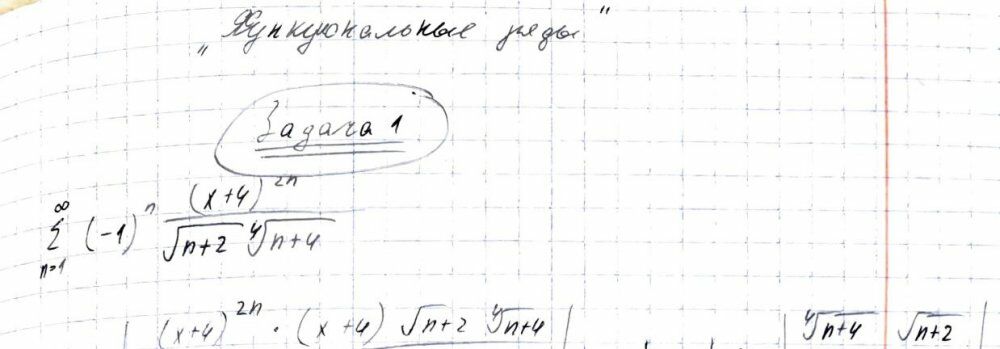 „Функциональные ряды"
Задача 1
∞
∑ (-1)ⁿ (x+4)²ⁿ / √n+2 ⁴√n+4
n=1
| (x+4)²ⁿ · (x+4) √n+2 ⁴√n+4 | | ⁴√n+4 √n+2 |